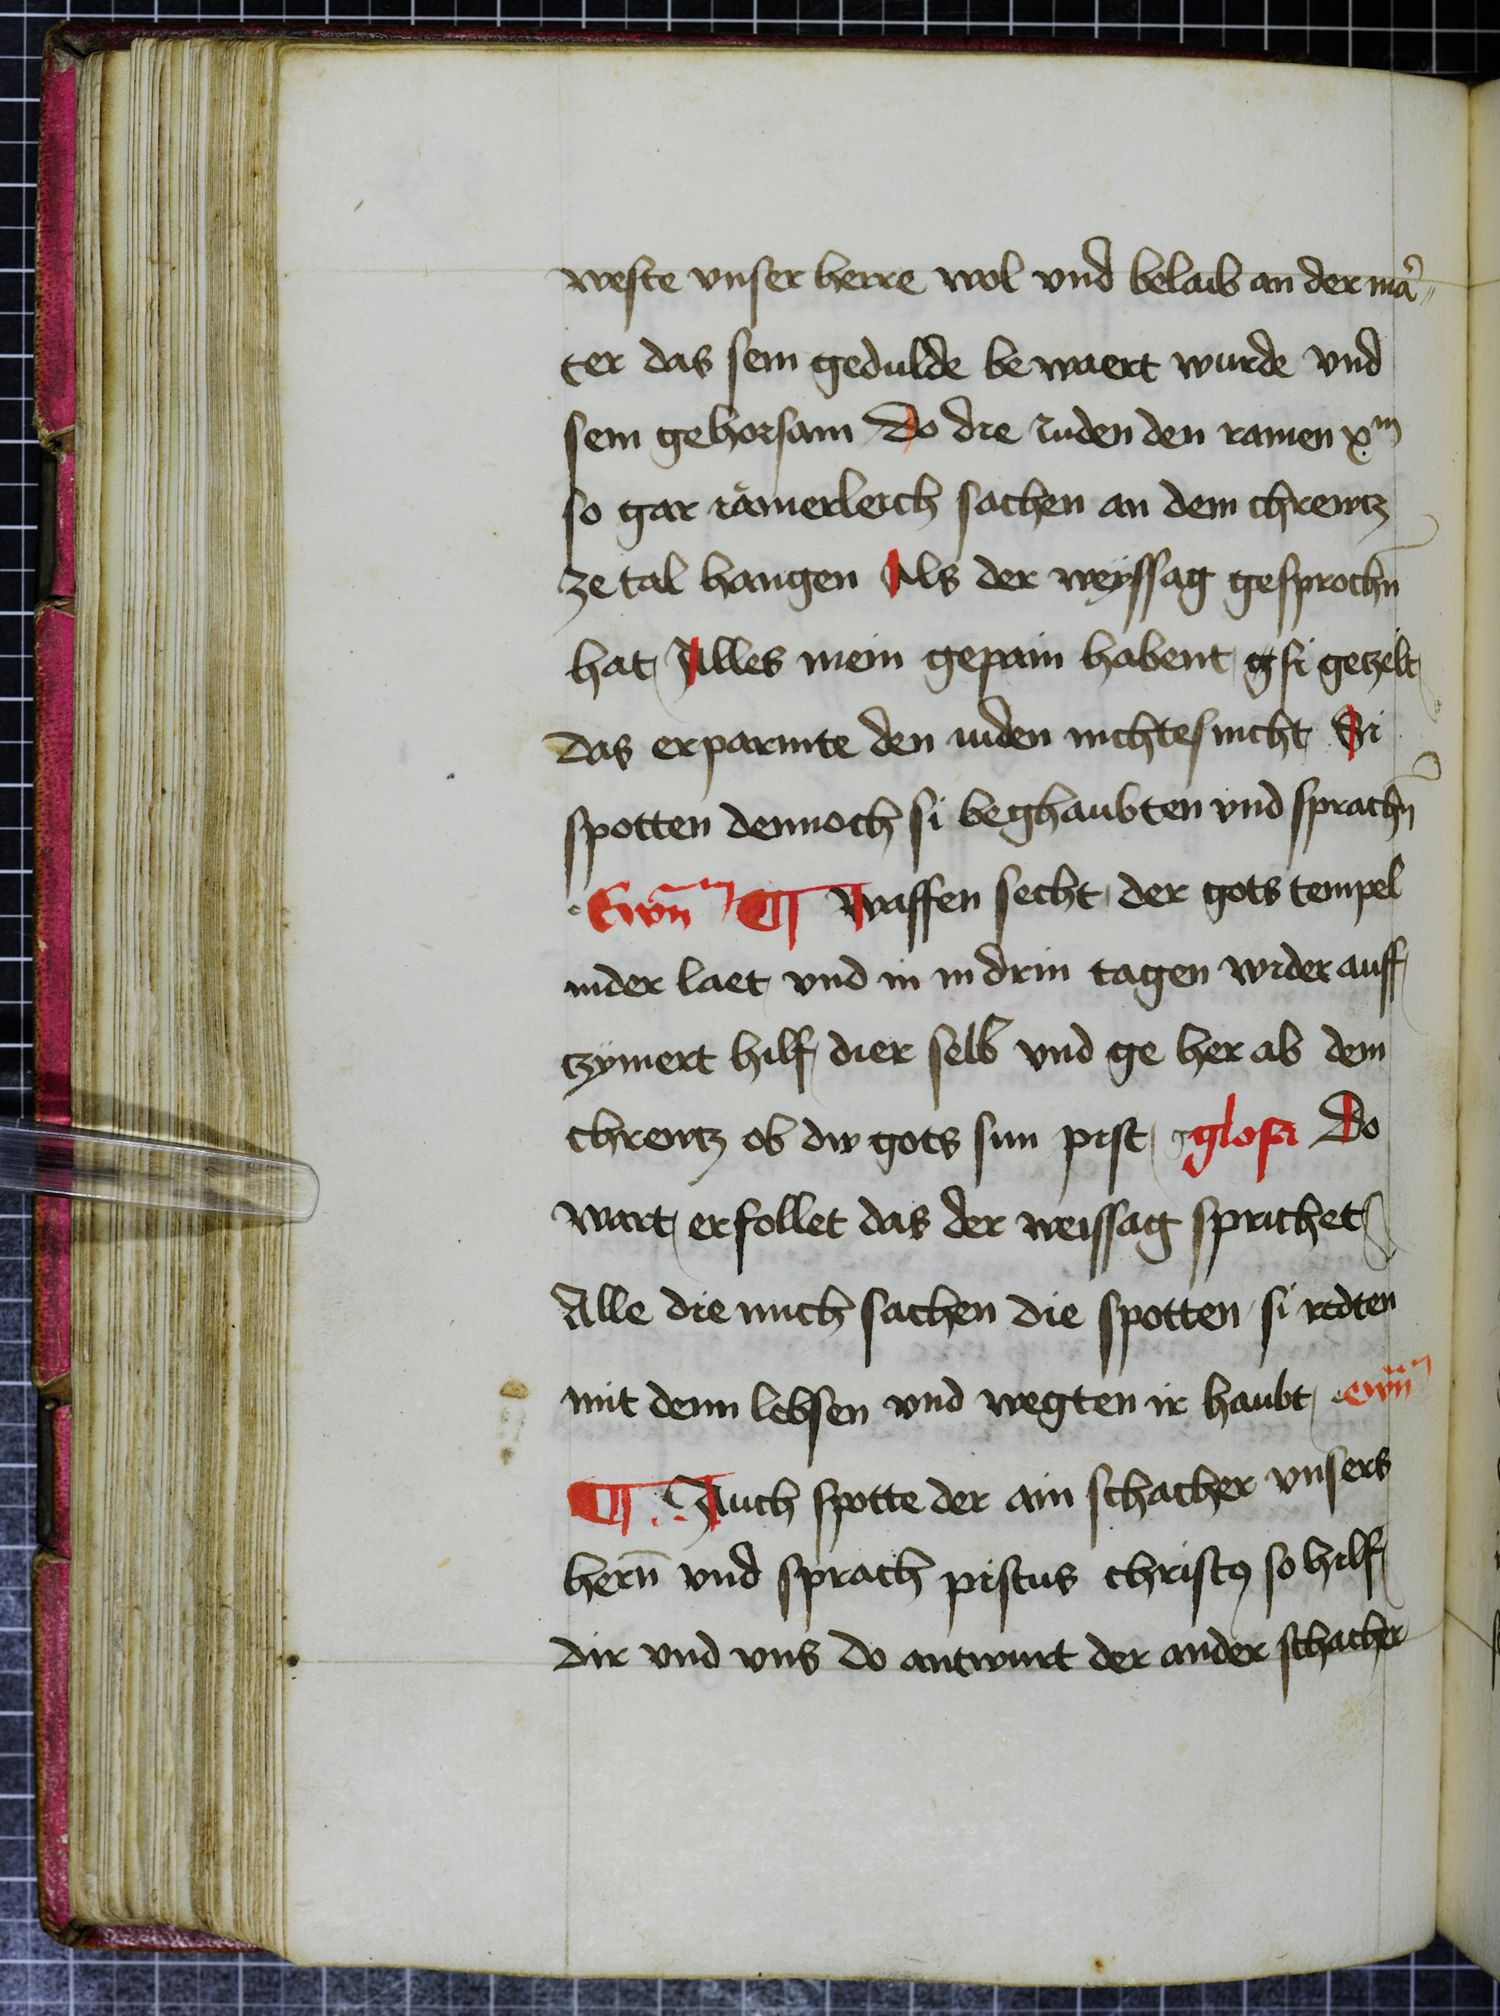 weste vnser herre wol vnd belaib an der mar
ter das sein gedulde be waert wurde vnd
sein gehorsam Do die iuden den ramen xm
so gar iämerleich sachen an dem chrewtz
ze tal hangen Als der weyssag gesprochn̄
hat Alles mein gepain habent si gezelt
das erparmte den iuden nichtesnicht Si
spotten dennoch si beghaubten vnd sprachn̄
Ewn̄m ¶ Waffen secht der gots tempel
nider laet vnd in in drin tagen wider auff
tzymert hilf dier selb vnd ge her ab dem
chrewtz ob dw gots sun pist glosa Do
wart erfollet das der weissag sprichet
Alle die mich sachen die spotten si redten
mit denn lebsen vnd wegten ir haubt ewn̄m
¶ Auch spotte der ain schacher vnsers
hern̄ vnd sprach pistus christ9 so hilf
dir vnd vns do antwurt der ander schacher